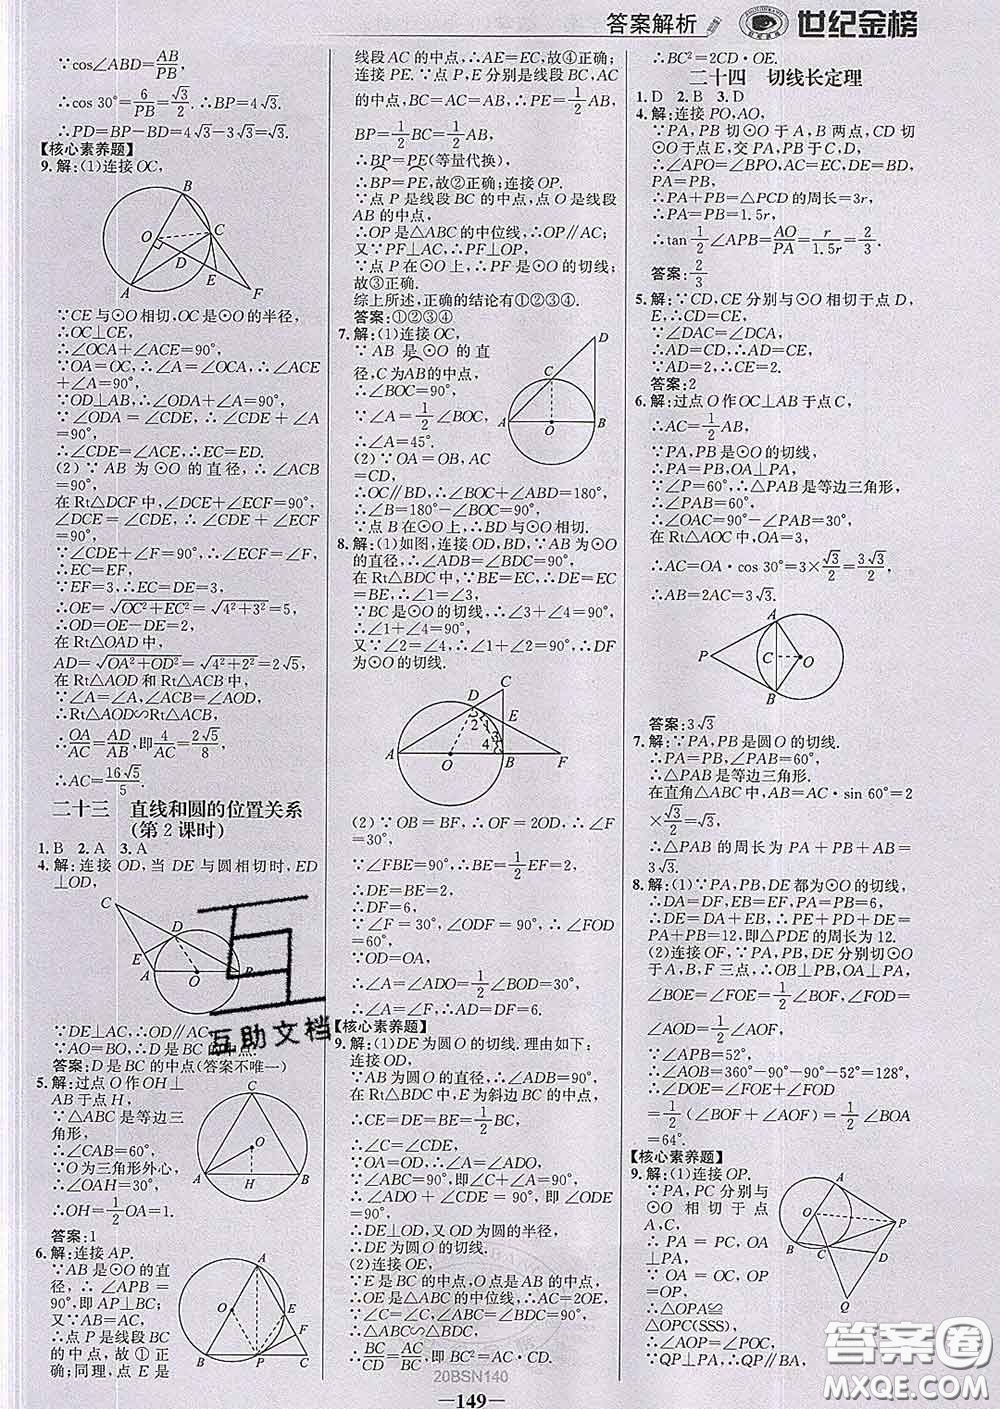 答案解析 世纪金榜
∵cos∠ABD=AB/PB,
∴cos 30°=6/PB=√3/2.∴BP=4√3.
∴PD=BP−BD=4√3−3√3=√3.
【核心素养题】
9.解:(1)连接OC,
B
O
C
D
E
A
F
∵CE与⊙O相切,OC是⊙O的半径,
∴OC⊥CE,
∴∠OCA+∠ACE=90°,
∵OA=OC,∴∠A=∠OCA,∴∠ACE
+∠A=90°,
∵OD⊥AB,∴∠ODA+∠A=90°,
∵∠ODA=∠CDE,∴∠CDE+∠A
=90°,
∴∠CDE=∠ACE,∴EC=ED.
(2)∵AB为⊙O的直径,∴∠ACB
=90°,
在Rt△DCF中,∠DCE+∠ECF=90°,
∠DCE=∠CDE,∴∠CDE+∠ECF
=90°,
∵∠CDE+∠F=90°,∴∠ECF=∠F,
∴EC=EF,
∵EF=3,∴EC=DE=3,
∴OE=√(OC²+EC²)=√(4²+3²)=5,
∴OD=OE−DE=2,
在Rt△OAD中,
AD=√(OA²+OD²)=√(4²+2²)=2√5,
在Rt△AOD和Rt△ACB中,
∵∠A=∠A,∠ACB=∠AOD,
∴Rt△AOD∽Rt△ACB,
∴OA/AC=AD/AB,即4/AC=2√5/8,
∴AC=16√5/5.
二十三 直线和圆的位置关系
(第2课时)
1.B 2.A 3.A
4.解:连接OD,当DE与圆相切时,ED
⊥OD,
C
D
E
A O B
∵DE⊥AC,∴OD∥AC,
∵AO=BO,∴D是BC的中点.
答案:D是BC的中点(答案不唯一)
5.解:过点O作OH⊥
AB于点H,
∵△ABC是等边三
角形,
∴∠CAB=60°,
∵O为三角形外心,
∴∠OAH=30°,
∴OH=1/2OA=1.
答案:1
C
O
A H B
6.解:连接AP.
∵AB是⊙O的直
径,∴∠APB=
90°,即AP⊥BC;
又∵AB=AC,
∴点P是线段BC
的中点,故①正
确;同理,点E是
A
O E
F
B P C
线段AC的中点,∴AE=CE,故④正确;
连接PE.∵点P,E分别是线段BC,AC
的中点,BC=AC=AB,∴PE=1/2AB,
BP=1/2BC=1/2AB,
∴BP=PE(等量代换),
∴BP=PE,故②正确;连接OP.
∵点P是线段BC的中点,点O是线段
AB的中点,
∴OP是△ABC的中位线,∴OP∥AC;
又∵PF⊥AC,∴PF⊥OP.
∵点P在⊙O上,∴PF是⊙O的切线;
故③正确.
综上所述,正确的结论有①②③④.
答案:①②③④
7.解:(1)连接OC,
∵AB是⊙O的直
径,C为AB的中点,
∴∠BOC=90°,
∵∠A=1/2∠BOC,
∴∠A=45°.
D
C
A O B
(2)∵OC=OA,AC
=CD,
∴OC∥BD,∴∠BOC+∠ABD=180°,
∴∠B=180°−90°=90°,
∵点B在⊙O上,∴BD与⊙O相切.
8.解:(1)如图,连接OD,BD,∵AB为⊙O
的直径,∴∠ADB=∠BDC=90°,
在Rt△BDC中,∵BE=EC,∴DE=EC=
BE,∴∠1=∠3,
∵BC是⊙O的切线,∴∠3+∠4=90°,
∴∠1+∠4=90°,
又∵∠2=∠4,∴∠1+∠2=90°,∴DF
为⊙O的切线.
C
D
E
2 1 3
4
A O B F
(2)∵OB=BF,∴OF=2OD,∴∠F=
30°,
∵∠FBE=90°,∴BE=1/2EF=2,
∴DE=BE=2,
∴DF=6,
∵∠F=30°,∠ODF=90°,∴∠FOD=
60°,
∵OD=OA,
∴∠A=∠ADO=1/2∠FOD=30°,
∴∠A=∠F,∴AD=DF=6.
【核心素养题】
9.解:(1)DE为圆O的切线.理由如下:
连接OD,
∵AB为圆O的直径,∴∠ADB=90°,
在Rt△BDC中,E为斜边BC的中点,
∴CE=DE=BE=1/2BC,
∴∠C=∠CDE,
∵OA=OD,∴∠A=∠ADO,
∵∠ABC=90°,即∠C+∠A=90°,
∴∠ADO+∠CDE=90°,即∠ODE
=90°,
∴DE⊥OD,又OD为圆的半径,
∴DE为圆O的切线.
(2)连接OE,
∵E是BC的中点,O点是AB的中点,
∴OE是△ABC的中位线,∴AC=2OE,
∵∠C=∠C,∠ABC=∠BDC,
∴△ABC∽△BDC,
∴BC/CD=AC/BC,即BC²=AC·CD.
∴BC²=2CD·OE.
二十四 切线长定理
1.D 2.B 3.D
4.解:连接PO,AO,
∵PA,PB切⊙O于A,B两点,CD切
⊙O于点E,交PA,PB于C,D,
∴∠APO=∠BPO,AC=EC,DE=BD,
PA=PB,
∴PA+PB=△PCD的周长=3r,
∴PA=PB=1.5r,
∴tan 1/2∠APB=AO/PA=r/1.5r=2/3.
答案:2/3
5.解:∵CD,CE分别与⊙O相切于点D,
E,∴CD=CE=2,
∵∠DAC=∠DCA,
∴AD=CD,∴AD=CE=2.
答案:2
6.解:过点O作OC⊥AB于点C,
∴AC=1/2AB,
∵PA,PB是⊙O的切线,
∴PA=PB,OA⊥PA,
∵∠P=60°,∴△PAB是等边三角形,
∴∠PAB=60°,
∴∠OAC=90°−∠PAB=30°,
在Rt△AOC中,OA=3,
∴AC=OA·cos 30°=3×√3/2=3√3/2,
∴AB=2AC=3√3.
A
P C O
B
答案:3√3
7.解:∵PA,PB是圆O的切线.
∴PA=PB,∠P=60°,
∴△PAB是等边三角形.
在直角△AHC中,AB=AC·sin 60°=
2×√3/2=√3,
∴△PAB的周长为PA+PB+AB=
3√3.
8.解:(1)∵PA,PB,DE都为⊙O的切线,
∴DA=DF,EB=EF,PA=PB=6,
∴DE=DA+EB,∴PE+PD+DE=
PA+PB=12,即△PDE的周长为12.
(2)连接OF,∵PA,PB,DE分别切⊙O
于A,B,F三点,∴OB⊥PB,OA⊥PA,
∠BOE=∠FOE=1/2∠BOF,∠FOD=
∠AOD=1/2∠AOF,
∵∠APB=52°,
∴∠AOB=360°−90°−90°−52°=128°,
∴∠DOE=∠FOE+∠FOD
=1/2(∠BOF+∠AOF)=1/2∠BOA
=64°.
【核心素养题】
9.解:(1)连接OP.
∵PA,PC分别与
⊙O相切于点
A,C,
∴PA=PC,
∵OA=OC,OP
=OP,
∴△OPA≌
△OPC(SSS)
∴∠AOP=∠POC,
∵QP⊥PA,∴∠QPA=90°,
A
O
P
B C D
Q
互助文档
20BSN140
—149—
答案圈
MXQE.COM